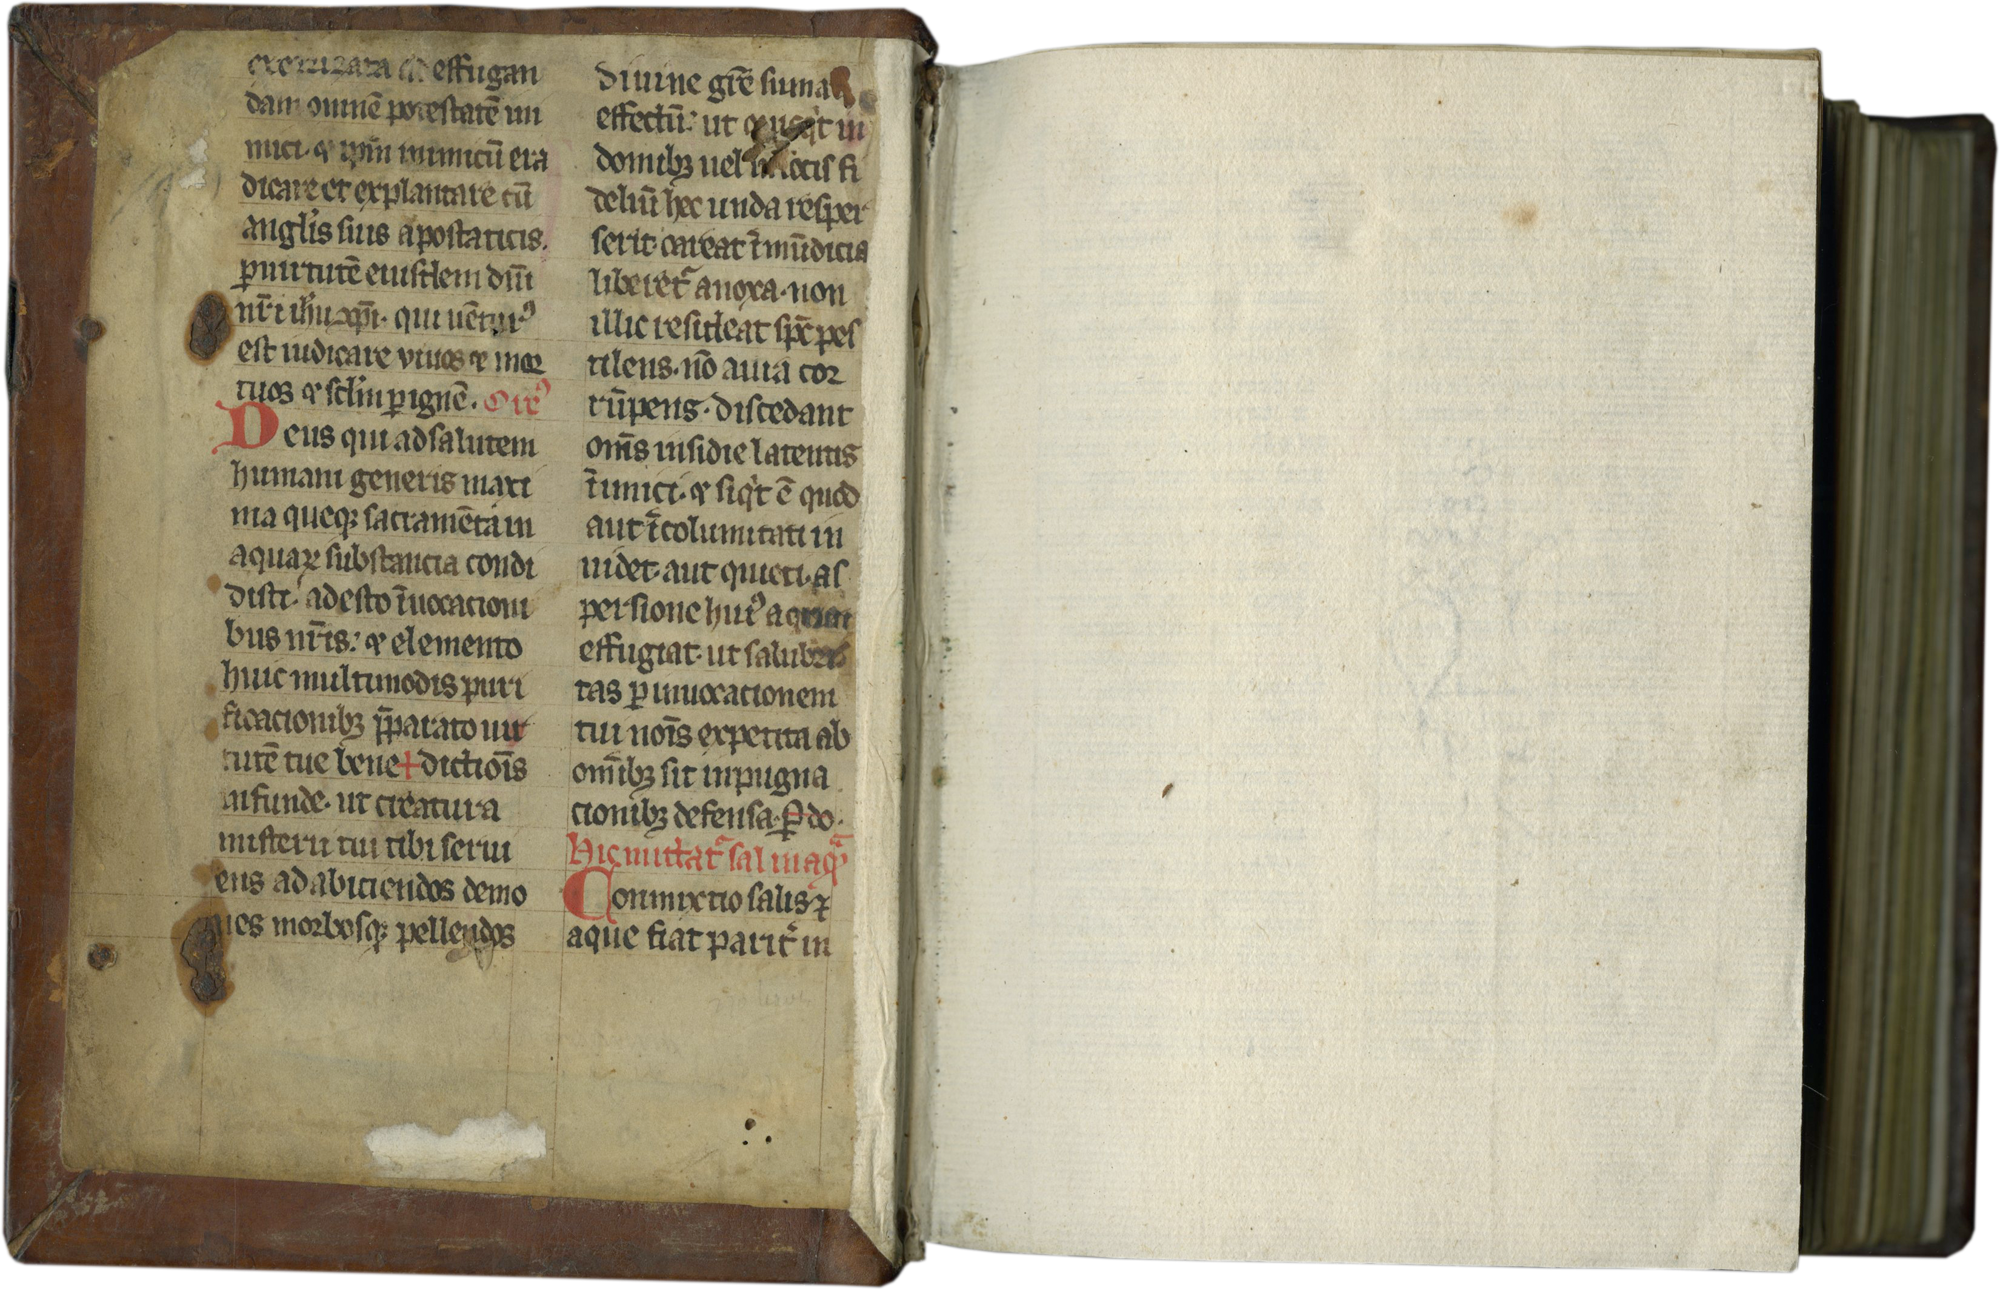 exorcizata ad effugan
dam omnē potestatē ini
mici· ⁊ ip̄m inimicū era
dicare et explantare cū
anglis suis apostaticis.
ꝑ uirtutē eiusdem dn̄i
nr̄i ihū xp̄i· qui uētur⁹
est iudicare viuos ⁊ mor
tuos ⁊ sclm̄ ꝑ ignē.
Deus qui ad salutem
humani generis maxi
ma queqꝫ sacramēta in
aquaꝝ substancia condi
disti· adesto īuocacioni
bus nr̄is: ⁊ elemento
huic multimodis puri
ficacionibꝫ p̄parato uir
tutē tue bene+dictiois̄
infunde· ut creatura
misterii tui tibi serui
ens ad abiciendos demo
nes morbosqꝫ pellendos
diuine gr̄e sumat
effectū: ut quicqͥt in
domibꝫ uel in locis fi
deliū hec unda resper
serit· careat īmūdicia
liberet᷑ a noxa· non
illic resideat spc̄ pes
tilens· nō aura cor
rūpens· discedant
om̄s insidie latentis
īimici· ⁊ siqͥt ē quod
aut īcolumitati in
uidet· aut quieti· as
persione hui⁹ aque
effugiat· ut salubri
tas ꝑ inuocacionem
tui nois̄ expetita ab
om̄ibꝫ sit inpugna
cionibꝫ defensa· P do·
Hic mittat᷑ sal in aqͣ
Conmixtio salis ⁊
aque fiat parit᷑ in